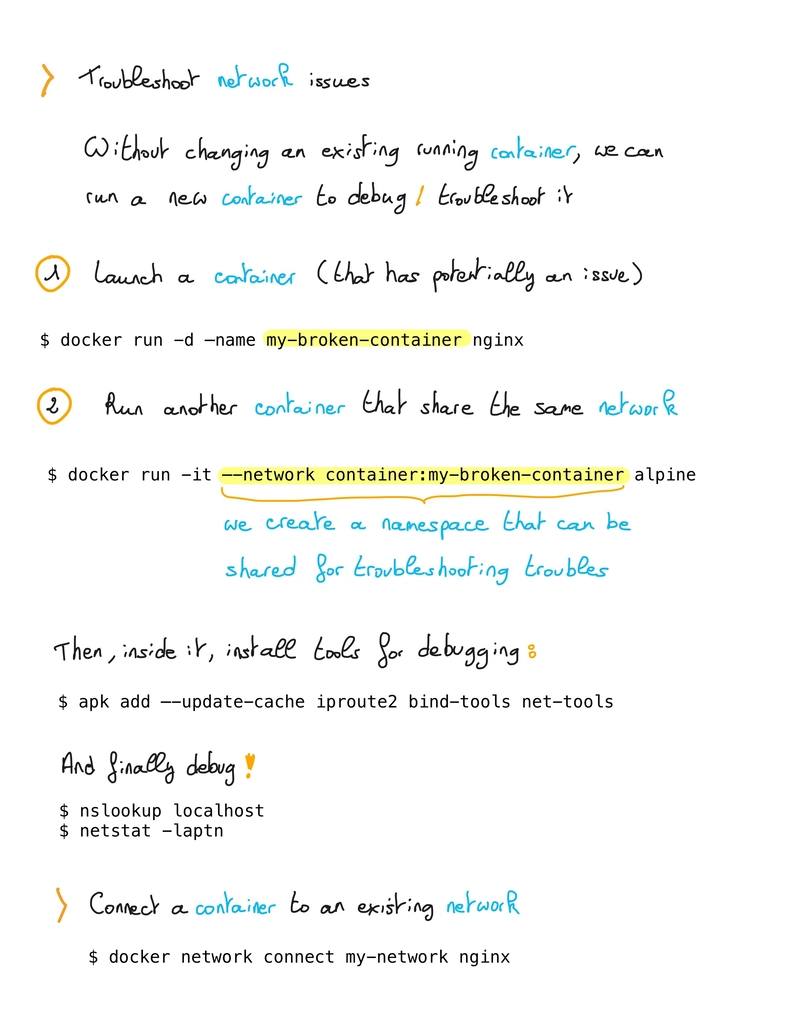 > Troubleshoot network issues
Without changing an existing running container, we can
run a new container to debug / troubleshoot it
1 Launch a container (that has potentially an issue)
$ docker run -d —name my-broken-container nginx
2 Run another container that share the same network
$ docker run -it --network container:my-broken-container alpine
we create a namespace that can be
shared for troubleshooting troubles
Then, inside it, install tools for debugging:
$ apk add --update-cache iproute2 bind-tools net-tools
And finally debug!
$ nslookup localhost
$ netstat -laptn
> Connect a container to an existing network
$ docker network connect my-network nginx